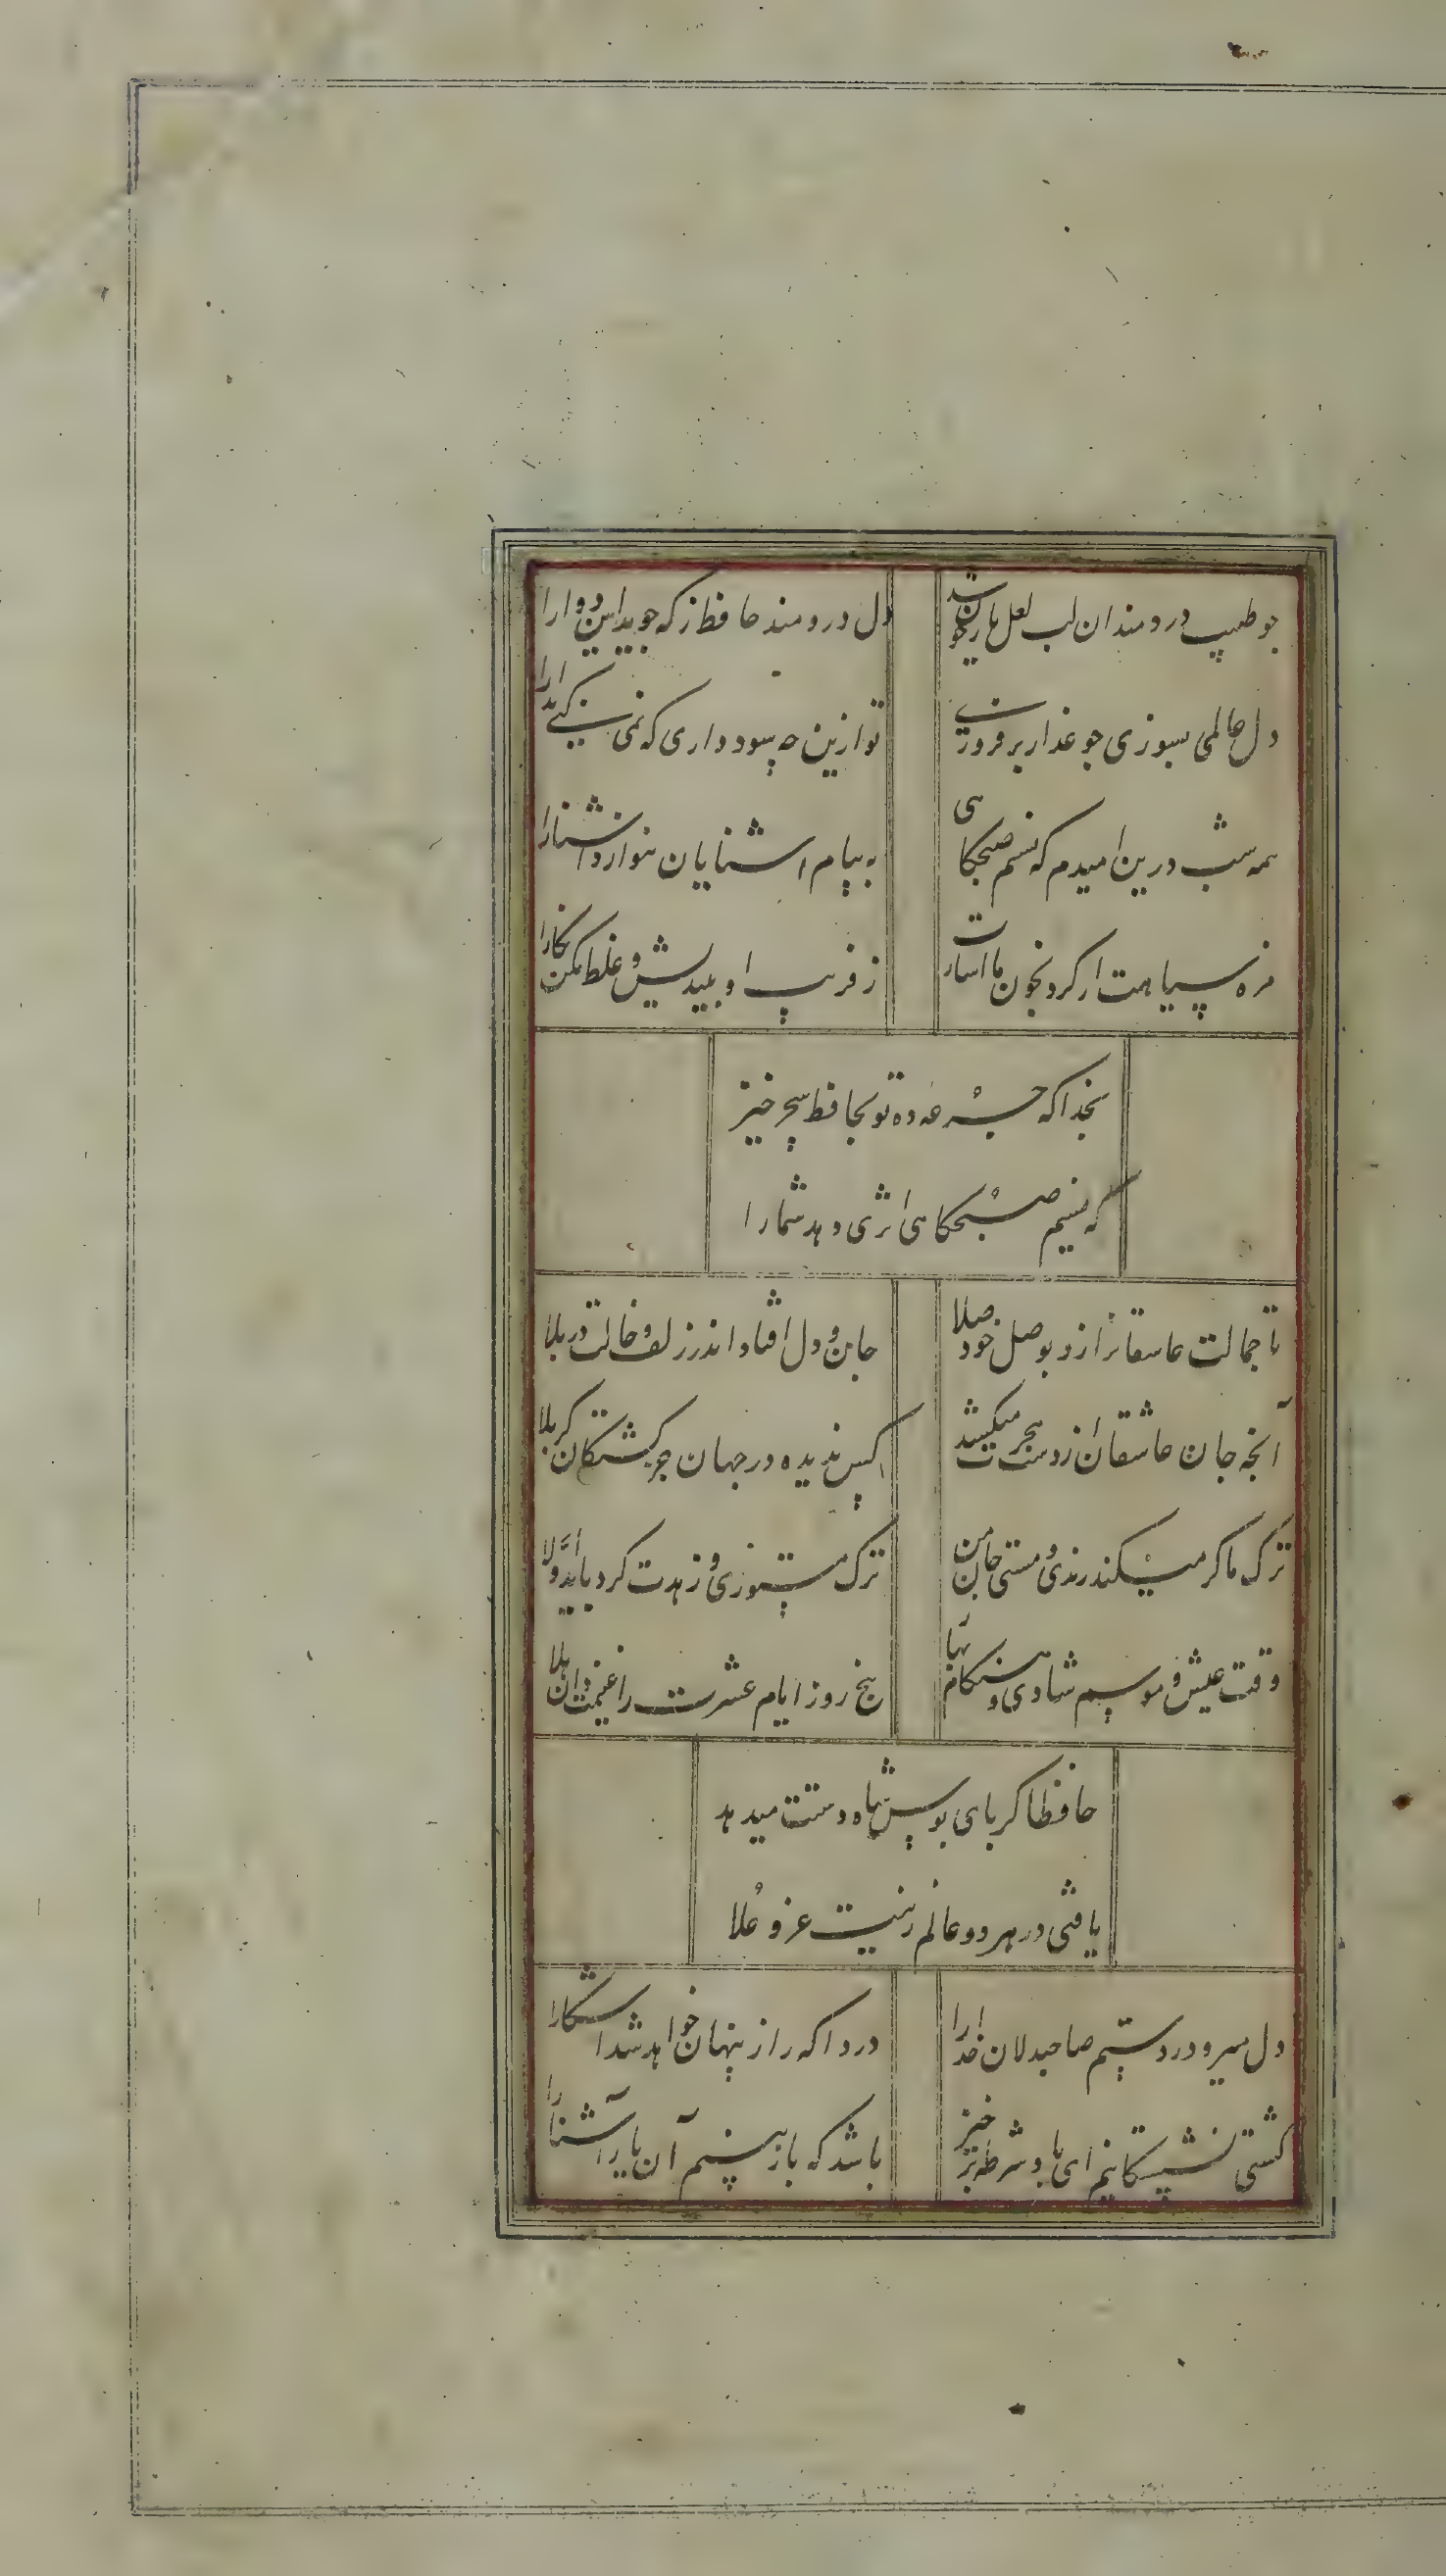 جو طبیب دردمندان لب لعل یار خون شد
دل دردمند حافظ ز که جوید این دوا را
دل عالمی بسوزی جو عذار بر فروزی
تو ازین چه سود داری که نمی کنی مدارا
همه شب درین امیدم که نسیم صبحکاهی
به پیام اشنایان بنوازد اشنا را
مژه سیاهت ار کرد بخون ما اشارت
ز فریب او بیندیش و غلط مکن نکارا
بخدا که جرعه ده تو بحافظ سحر خیز
که نسیم صبحکاهی اثری دهد شما را
تا جمالت عاشقانرا زد بوصل خود صلا
جان و دل افتاد اندر زلف و خالت در بلا
آنجه جان عاشقان از دست هجرت میکشد
کس ندیده در جهان جز کشتکان کربلا
ترک ما کر میکند رندی و مستی جان من
ترک مستوری و زهدت کرد باید اولا
وقت عیش و موسم شادی و هنکام
پنج روز ایام عشرت را غنیمت دان هلا
حافظا کر بای بوس شاه دستت میدهد
یافتی در هر دو عالم زینت عز و علا
دل میرود ز دستم صاحبدلان خدا را
دردا که راز پنهان خواهد شد اشکارا
کشتی نشستکانیم ای باد شرطه بر خیز
باشد که باز بینیم آن یار آشنا را